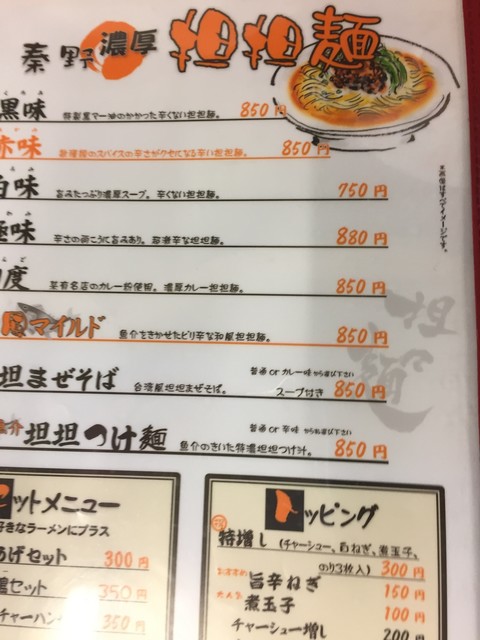 秦野濃厚担担麺
黒味 特製黒マー油のかかった辛くない担担麺。 850円
赤味 数種類のスパイスの辛さがクセになる辛い担担麺。 850円
白味 旨みたっぷり濃厚スープ。辛くない担担麺。 750円
極味 辛さの向こうに旨みあり。超激辛な担担麺。 880円
印度 某有名店のカレー粉使用。濃厚カレー担担麺。 850円
マイルド 魚介をきかせたピリ辛な和風担担麺。 850円
普通 or カレー味からお選び下さい
担まぜそば 台湾風担担まぜそば。 スープ付き 850円
普通 or 辛味 からお選び下さい
魚介担担つけ麺 魚介のきいた特濃担担つけ汁。 850円
※写真はすべてイメージです。
担担麺
セットメニュー
好きなラーメンにプラス
あげセット 300円
セット 350円
チャーハン 350円
トッピング
特増し (チャーシュー、白ねぎ、煮玉子、
のり3枚入) 300円
おすすめ 旨辛ねぎ 150円
大人気 煮玉子 100円
チャーシュー増し 200円